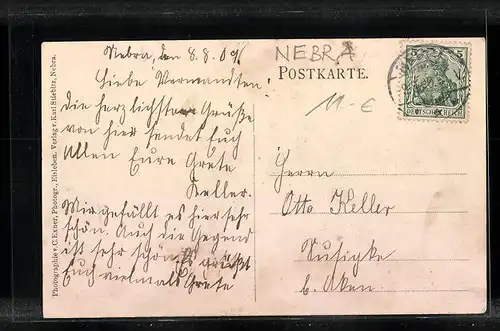 Nebra, den 8.8.09.
Liebe Verwandten!
Die herzlichsten Grüße
von hier sendet Euch
Allen Eure Grete
Keller.
Mir gefällt es hier sehr
schön. Auch die Gegend
ist sehr schön. Es grüßt
Euch vielmals Grete
Photographie v. C. Exner, Photogr., Eisleben. Verlag v. Karl Stiebitz, Nebra.
NEBRA
POSTKARTE.
11.-€
5 5
DEUTSCHES REICH
Herrn
Otto Keller
Susigke
b. Aken.